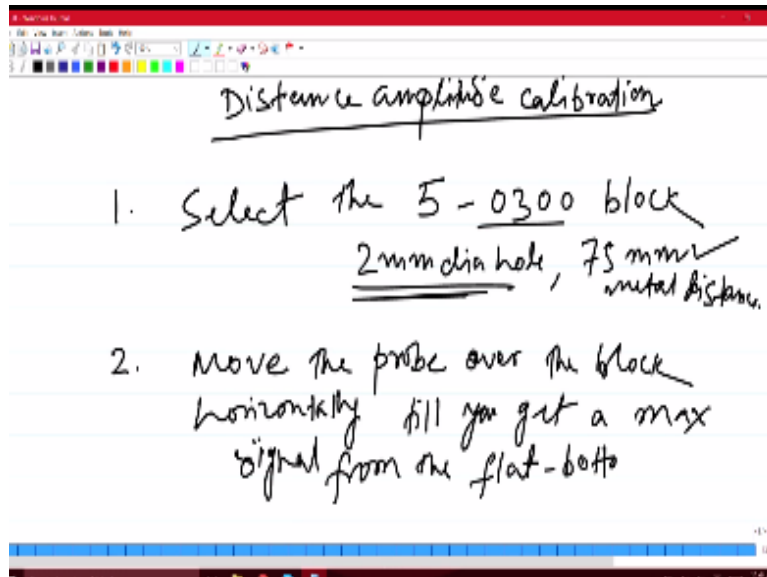 Distance amplitude calibration
1. Select the 5-0300 block
2mm dia hole, 75 mm
metal distance.
2. Move the probe over the block
horizontally till you get a max
signal from the flat-botto